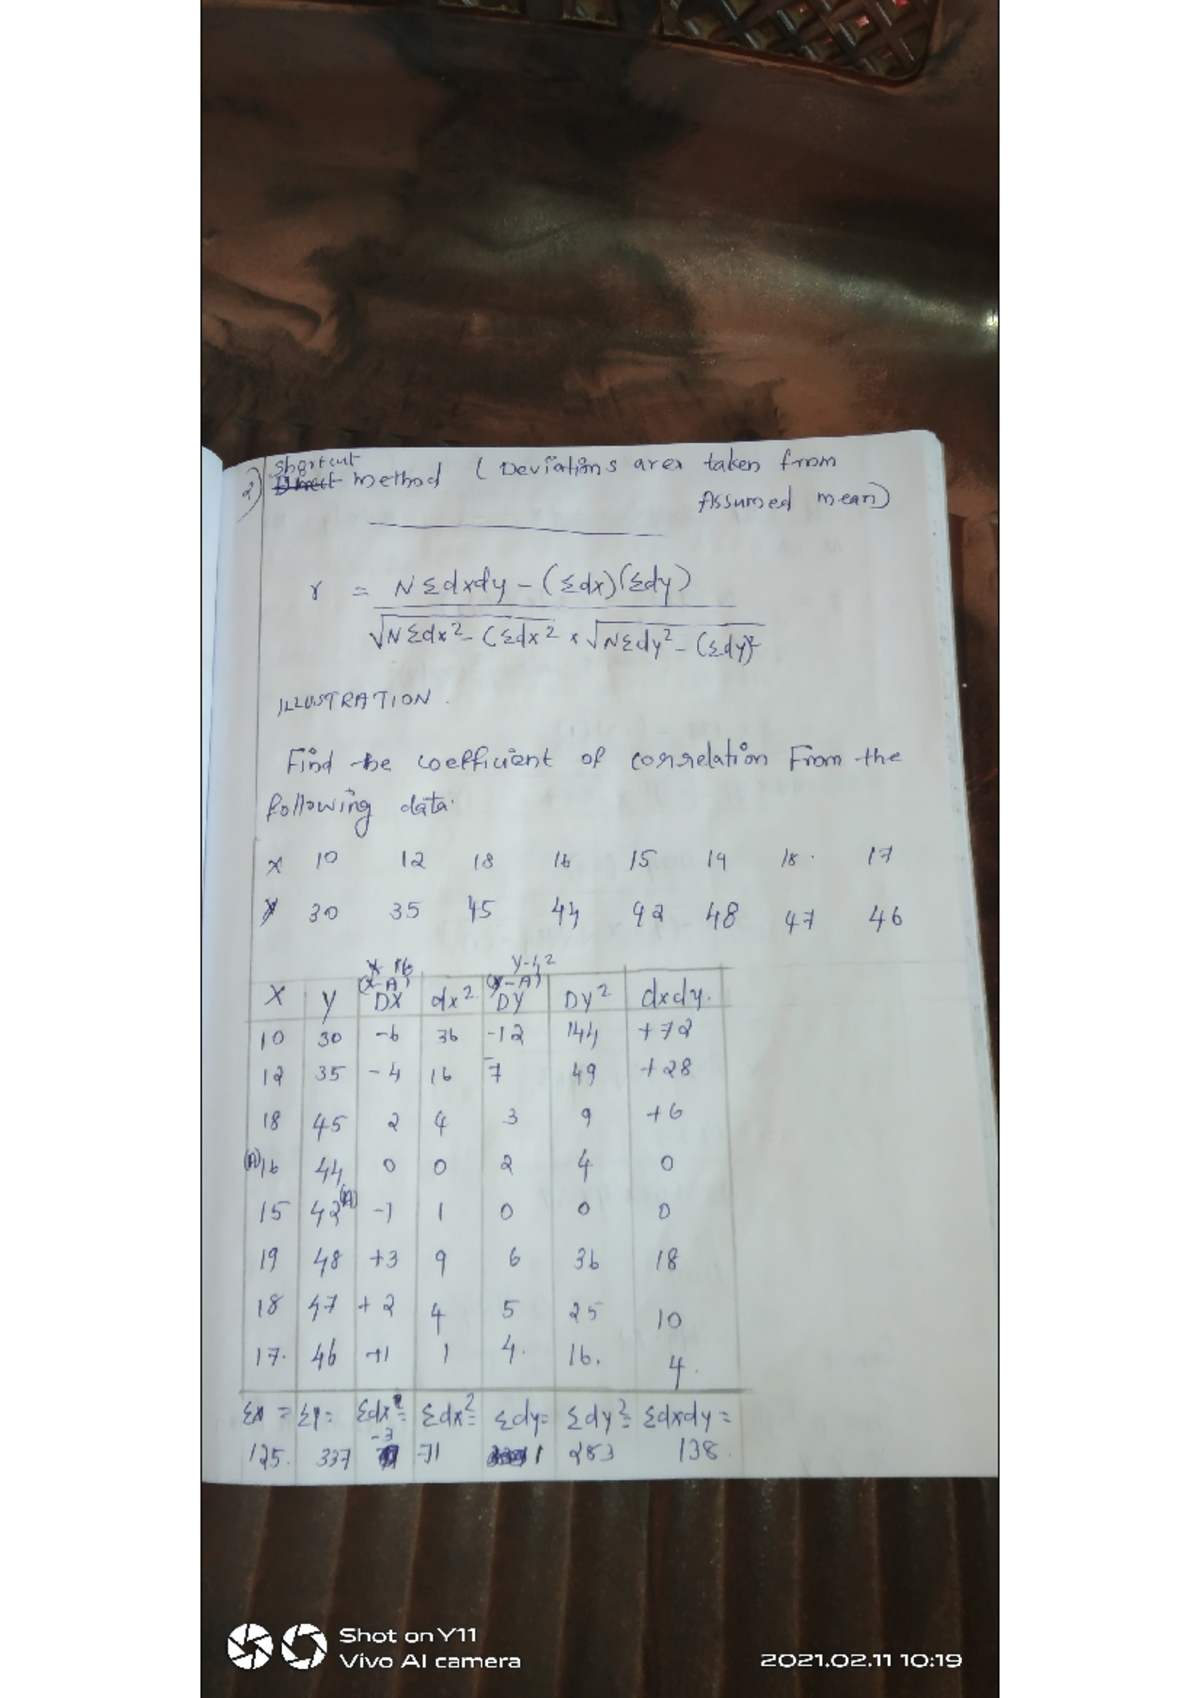 2) Shortcut method (Deviations area taken from
Assumed mean)
r = N Σdxdy - (Σdx)(Σdy)
√NΣdx² - (Σdx² × √NΣdy² - (Σdy)²
ILLUSTRATION.
Find the coefficient of correlation From the
following data.
X 10 12 18 16 15 19 18. 17
Y 30 35 45 44 42 48 47 46
X-16 Y-42
(X-A) (Y-A)
X Y DX dx² DY DY² dxdy.
10 30 -6 36 -12 144 +72
12 35 -4 16 -7 49 +28
18 45 2 4 3 9 +6
(A) 16 44 0 0 2 4 0
15 42 (A) -1 1 0 0 0
19 48 +3 9 6 36 18
18 47 +2 4 5 25 10
17. 46 +1 1 4. 16. 4.
Σx = Σy = Σdx = Σdx² = Σdy = Σdy² = Σdxdy =
125. 337 -3 71 1 283 138.
Shot on Y11
Vivo AI camera
2021.02.11 10:19